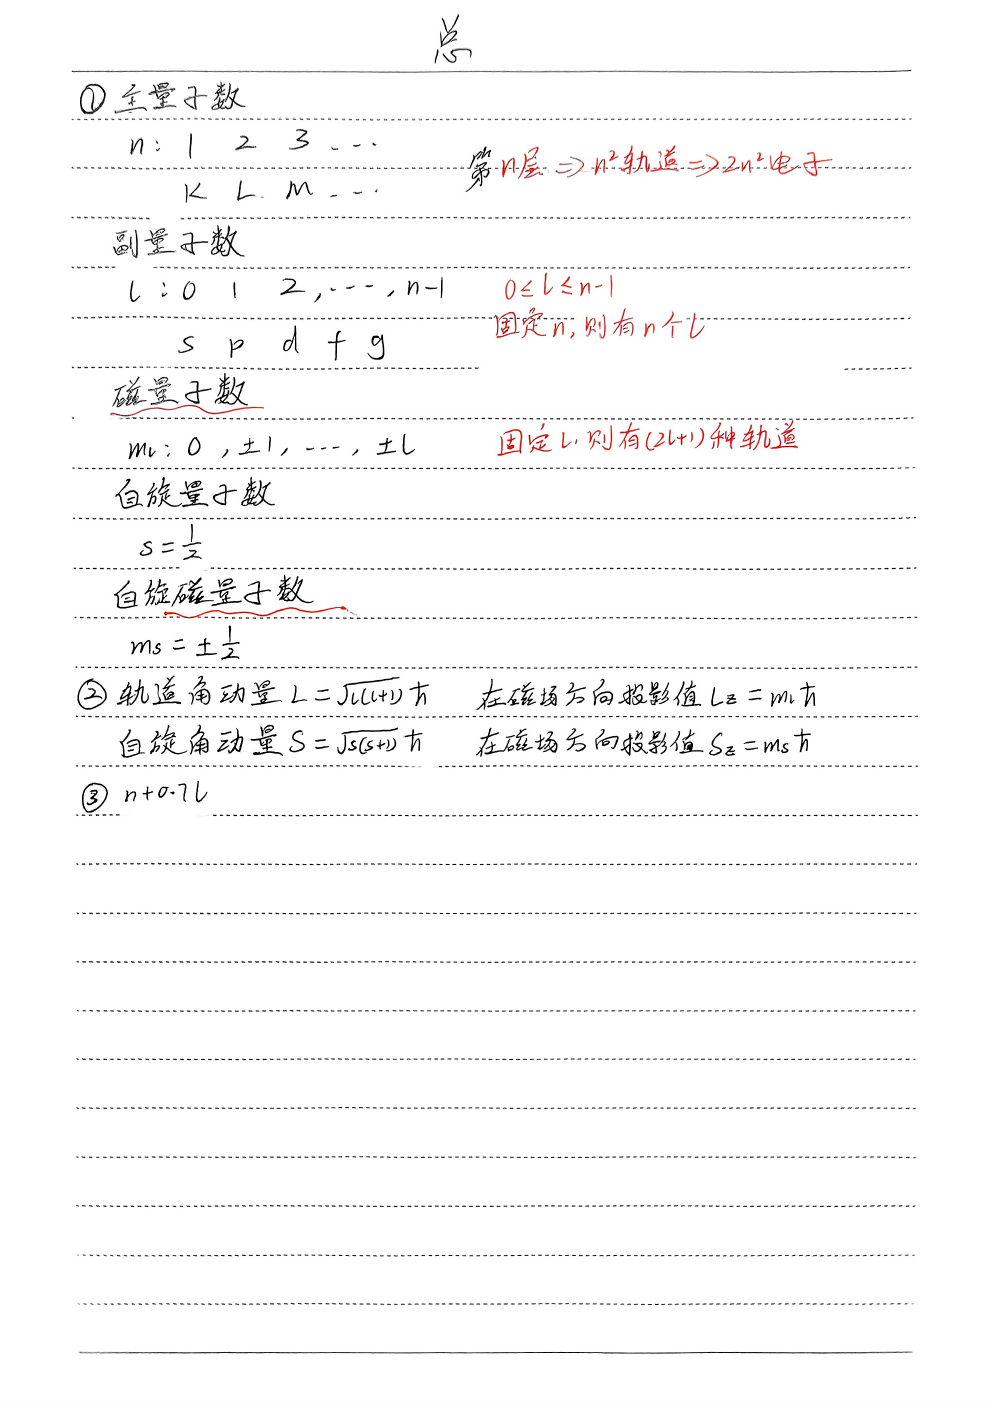 总
① 主量子数
n: 1 2 3 ...
第n层 => n²轨道 => 2n²电子
K L M ...
副量子数
l: 0 1 2, ..., n-1 0≤l≤n-1
固定n, 则有n个l
s p d f g
磁量子数
mₗ: 0, ±1, ..., ±l 固定l, 则有(2l+1)种轨道
自旋量子数
s = 1/2
自旋磁量子数
ms = ±1/2
② 轨道角动量 L = √l(l+1) ħ 在磁场方向投影值 Lz = mₗħ
自旋角动量 S = √s(s+1) ħ 在磁场方向投影值 Sz = msħ
③ n+0.7l